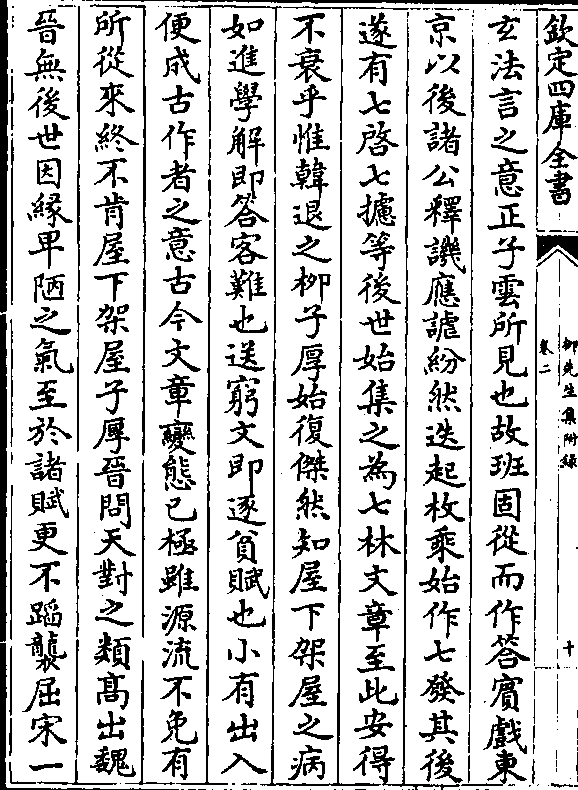 欽定四庫全書
柳先生集附録
卷二
十
玄法言之意正子雲所見也故班固從而作答賓戲東
京以後諸公釋譏應謔紛然迭起枚乘始作七發其後
遂有七啓七攄等後世始集之為七林文章至此安得
不衰乎惟韓退之栁子厚始復傑然知屋下架屋之病
如進學解即答客難也送窮文即逐貧賦也小有出入
便成古作者之意古今文章變態已極雖源流不免有
所從來終不肯屋下架屋子厚晉問天對之類髙出魏
晉無後世因緣卑陋之氣至於諸賦更不蹈襲屈宋一